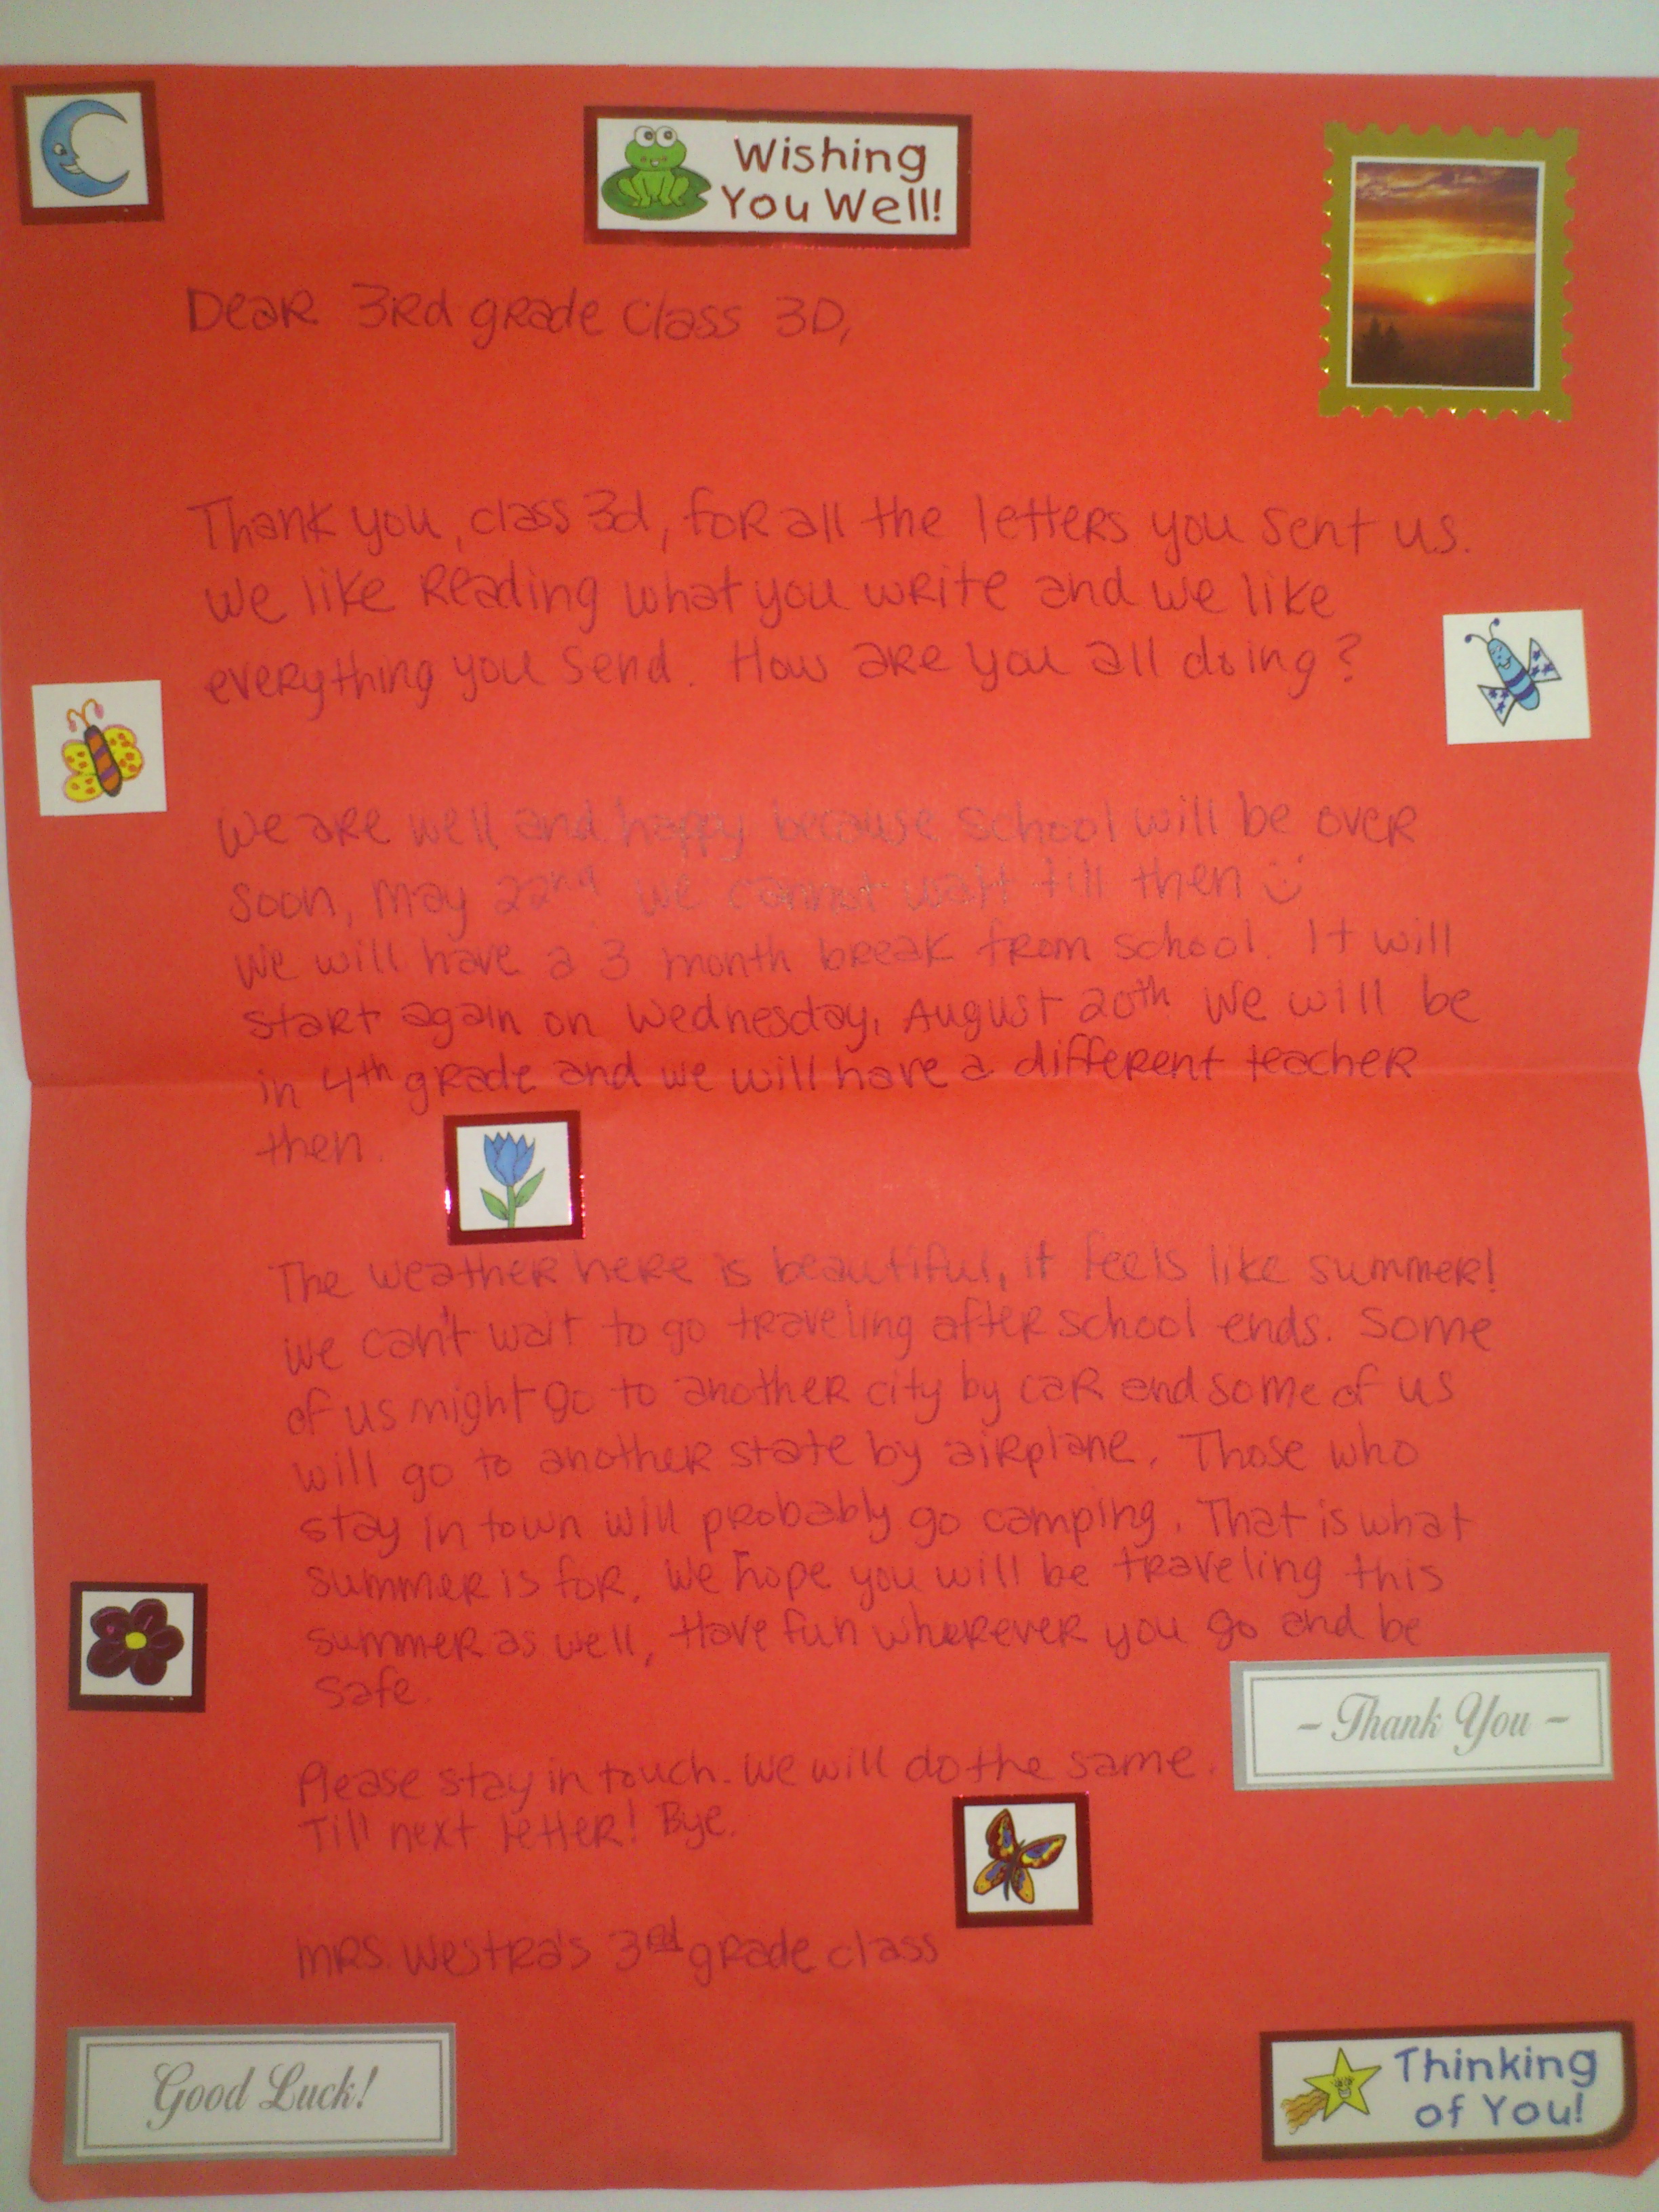 Wishing
You Well!
Dear 3rd grade class 3D,
Thank you, class 3d, for all the letters you sent us.
We like reading what you write and we like
everything you send. How are you all doing?
We are well and happy because school will be over
soon, May 22nd. We cannot wait till then :)
We will have a 3 month break from school. It will
start again on Wednesday, August 20th. We will be
in 4th grade and we will have a different teacher
then.
The weather here is beautiful, it feels like summer!
We can't wait to go traveling after school ends. Some
of us might go to another city by car and some of us
will go to another state by airplane. Those who
stay in town will probably go camping. That is what
summer is for. We hope you will be traveling this
summer as well, Have fun wherever you go and be
safe.
Please stay in touch. We will do the same.
Till next letter! Bye.
Mrs. Westra's 3rd grade class
~ Thank You ~
Good Luck!
Thinking
of You!